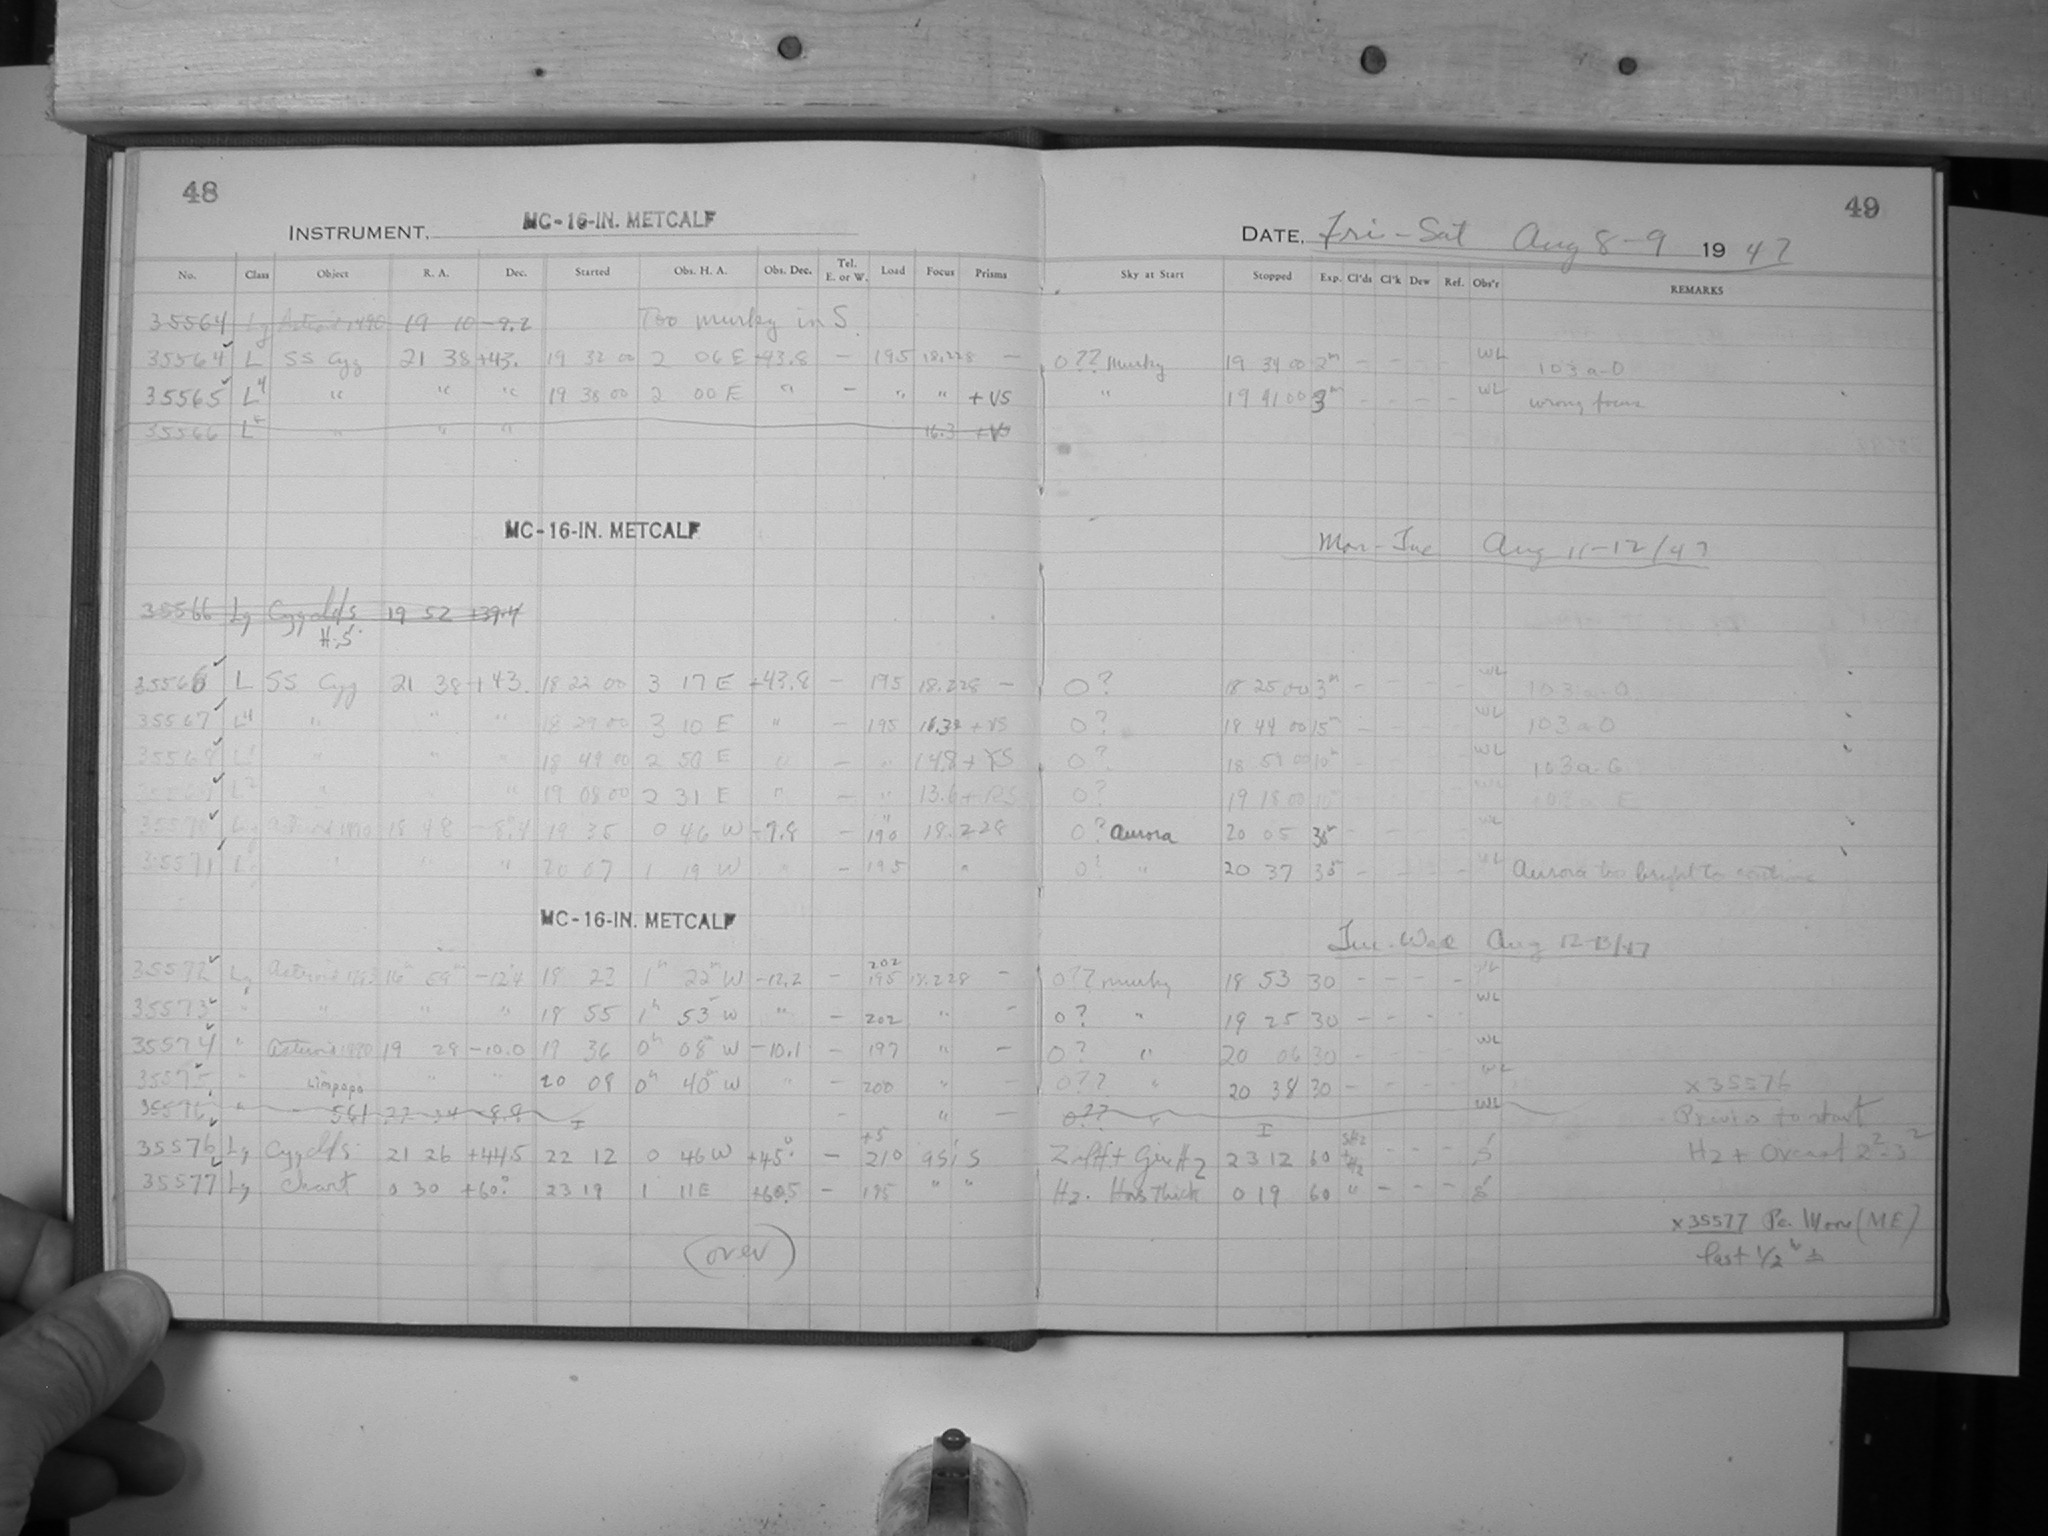 48
49
INSTRUMENT, MC-16-IN. METCALF
DATE, Fri-Sat Aug 8-9 1947
No. Class Object R. A. Dec. Started Obs. H. A. Obs. Dec. Tel. E. or W. Load Focus Prisms Sky at Start Stopped Exp. Cl'ds Cl'k Dew Ref. Obs'r REMARKS
35564 Lg 19 10 -9.2 Too murky in S.
35564 L SS Cyg 21 38 +43. 19 32 00 2 06 E +43.8 - 195 18.228 - 0?? Murky 19 34 00 2m - - - - WL 103a-O
35565 L4 " " " 19 38 00 2 00 E " - " " + VS " 19 41 00 3m - - - - WL wrong focus
35566 L4 " " " 16.3 +VS
MC-16-IN. METCALF
Mon-Tue Aug 11-12/47
35566 Lg Cyg clds 19 52 +39.4
H.S.
35566 L SS Cyg 21 38 +43. 18 22 00 3 17 E +43.8 - 195 18.228 - 0? 18 25 00 3m - - - - WL 103a-O
35567 L4 " " " 18 29 00 3 10 E " - 195 + VS 0? 18 44 00 15m - - - - WL 103a-O
35568 " " " 18 49 00 2 50 E " - " 14.8 + YS 0? 18 59 00 10m - - - - WL 103a-G
L2 " " " 19 08 00 2 31 E " - " 13.6 + RS 0? 19 18 00 WL 103a E
35570 Lg 18 48 19 35 0 46 W -9.8 - 190 18.228 0? Aurora 20 05 30m - - - - WL
35571 Lg " " " 20 07 1 19 W " - 195 " 0? " 20 37 30 - - - - WL Aurora too bright to continue
MC-16-IN. METCALF
Tue-Wed Aug 12-13/47
202
35572 Lg 16h 59m -12.4 18 23 1h 22m W -12.2 - 195 18.228 - 0?? murky 18 53 30 - - - - WL
35573 " " " " 18 55 1h 53m W " - 202 " - 0? " 19 25 30 - - - - WL
35574 " 19 28 -10.0 19 36 0h 08m W -10.1 - 197 " - 0? " 20 06 30 - - - - WL
35575 " Limpopo " " 20 08 0h 40m W " - 200 " - 0?? " 20 38 30 - - - - WL x 35576
35576 " 561 22 34 -8.8 - " - 0?? " WL Previs to start
35576 Lg Cyg clds 21 26 +44.5 22 12 0 46 W +45° - +5 210 S 23 12 60 - - - S H2 + Overcast
35577 Lg Chart 0 30 +60° 23 19 1 11 E +60.5 - 195 " " H2. Hors thick 0 19 60 " - - - S
x 35577 Pc. Moon (ME)
last 1/2h ±
(over)